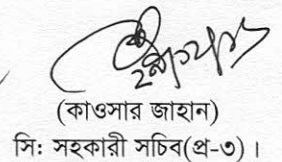 (কাওসার জাহান)
সি: সহকারী সচিব(প্র-৩)।